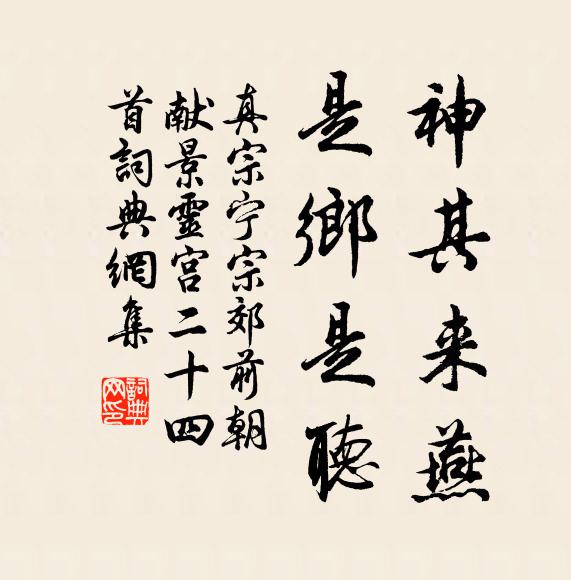 神其来燕
是鄉是聽
真宗宁宗郊前朝
献景靈宫二十四
首詞典網集
詞典網印